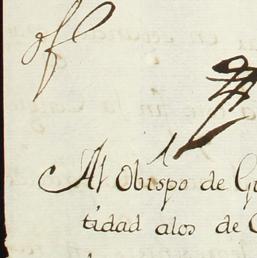 Al Obispo de Gu
tidad alos de